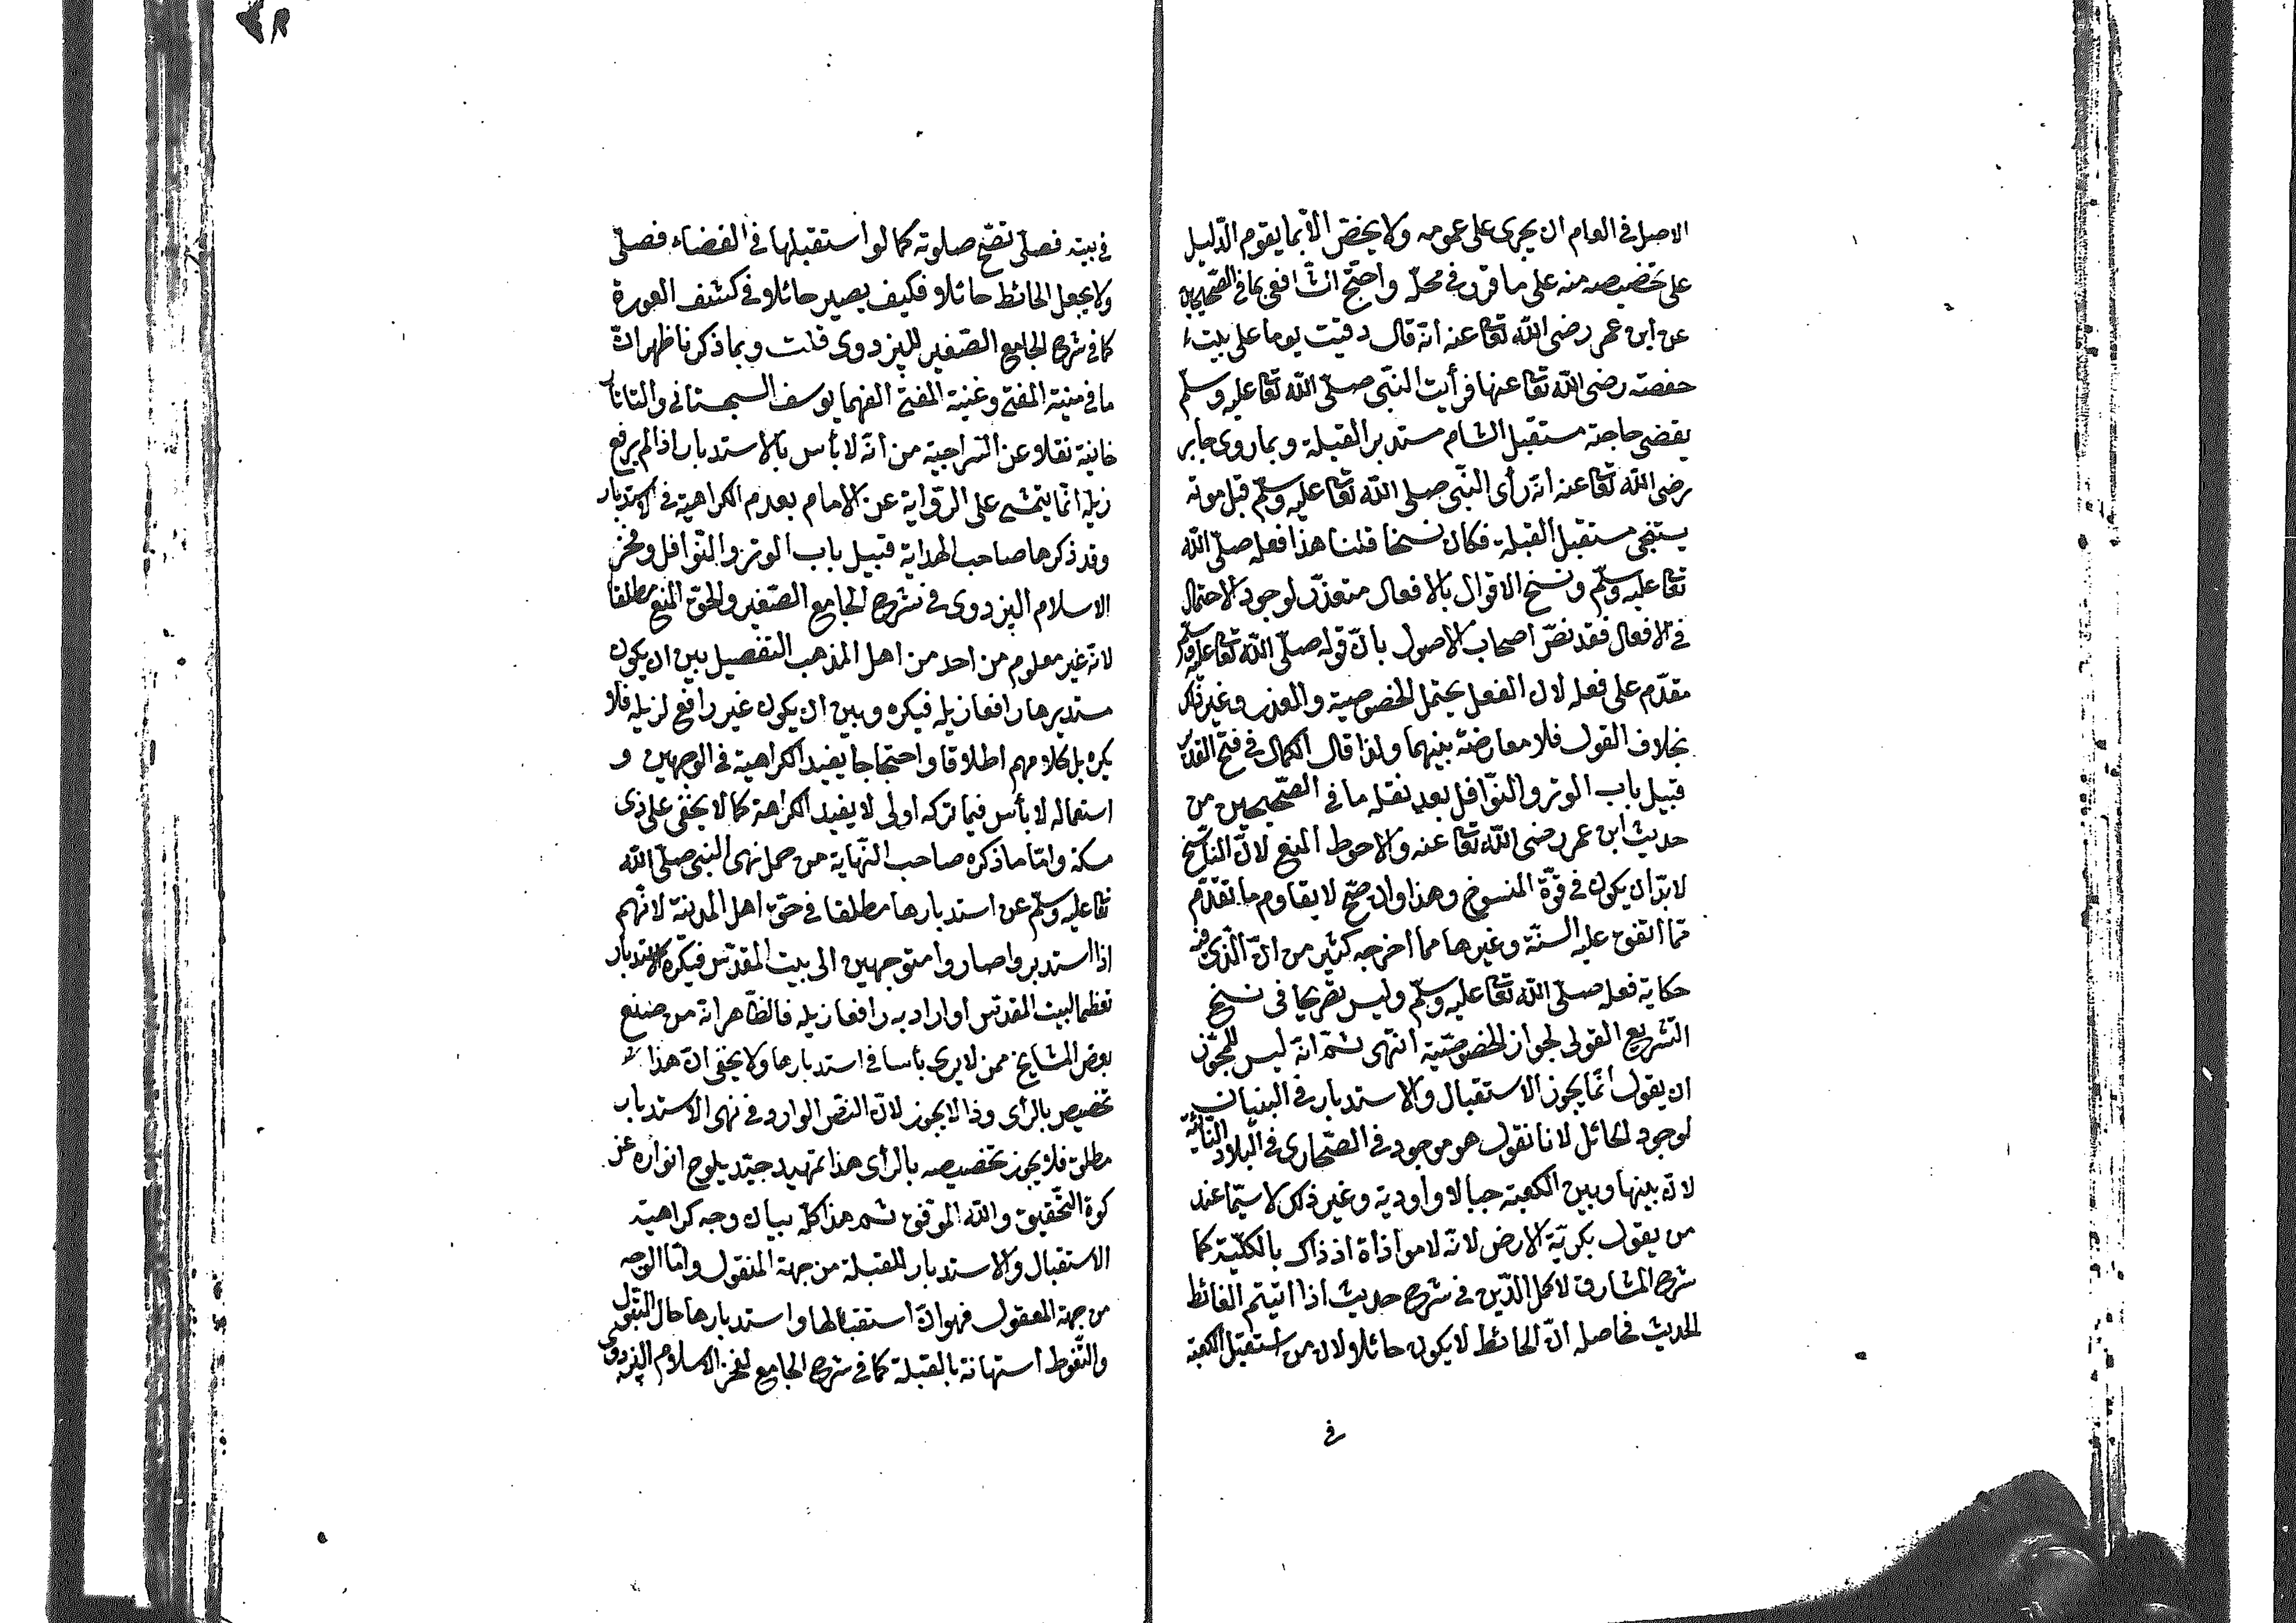 الاصل في العام ان يجرى على عمومه ولا يخصّ الّا بما يقوم الدّليل
على تخصيصه منه على ما قرر في محلّه واحتجّ الشافعي بما في الصّحيحين
عن ابن عمر رضى اللّه تعا عنه انّه قال رقيت يوما على بيت
حفصة رضى اللّه تعا عنها فرأيت النّبى صلّى اللّه تعا عليه وسلّم
يقضى حاجته مستقبل الشام مستدبر القبلة وبما روى جابر
رضى اللّه تعا عنه انّه رأى النّبى صلى اللّه تعا عليه وسلّم قبل موته
يستنجى مستقبل القبلة فكان نسخا قلنا هذا فعله صلّى اللّه
تعا عليه وسلّم ونسخ الاقوال بالافعال متعذّر لوجود الاحتمال
في الافعال فقد نصّ اصحاب الاصول بانّ قوله صلّى اللّه تعا عليه وسلّم
مقدّم على فعله لان الفعل يحتمل الخصوصية والعذر وغير ذلك
بخلاف القول فلا معارضة بينهما ولذا قال الكمال في فتح القدير
قبيل باب الوتر والنّوافل بعد نقله ما في الصّحيحين من
حديث ابن عمر رضى اللّه تعا عنه والاحوط المنع لانّ النّاسخ
لا بدّ ان يكون في قوّة المنسوخ وهذا وان صحّ لا يقاوم ما تقدّم
ممّا اتفق عليه السنّة وغيرها مما اخرجه كثير من انّ الّذى فيه
حكاية فعله صلّى اللّه تعا عليه وسلّم وليس تصريحا في نسخ
التّشريع القولى لجواز الخصوصّية انتهى ثمّ انّه ليس للمجوّز
ان يقول انّما يجوز الاستقبال والاستدبار في البنيان
لوجود الحائل لانا نقول هو موجود في الصّحارى في البلاد النّائية
لانّ بينها وبين الكعبة جبالا واودية وغير ذلك لا سيّما عند
من يقول بكريّة الارض لانّه لا موازاة اذ ذاك بالكلّيّة كما
شرح المشارق لاكمل الدّين في شرح حديث اذا اتيتم الغائط
الحديث فحاصله انّ الحائط لا يكون حائلا ولان من استقبل الكعبة
في
في بيته فصلّى تصّح صلوته كما لو استقبلها في الفضاء فصلّى
ولا يجعل الحائط حائلا فكيف يصير حائلا في كشف العورة
كما في شرح الجامع الصّغير للبزدوى قلت وبما ذكرنا ظهر انّ
ما في منية المفتى وغنية المفتى الفهما يوسف السجستاني والتاتار
خانية نقلا عن السّراجية من انّه لا بأس بالاستدبار اذا لم يرفع
زيله انّما يتمشى على الرّواية عن الامام بعدم الكراهية في الاستدبار
وقد ذكرها صاحب الهداية قبيل باب الوتر والنّوافل وفخر
الاسلام البزدوى في شرح الجامع الصّغير والحقّ المنع مطلقا
لانّه غير معلوم من احد من اهل المذهب التفصيل بين ان يكون
مستدبرها رافعا زيله فيكره وبين ان يكون غير رافع لزيله فلا
يكره بل كلامهم اطلاقا واحتجاجا يفيد الكراهية في الوجهين و
استعماله لا بأس فيما تركه اولى لا يفيد الكراهة كما لا يخفى على ذى
مسكة وامّا ما ذكره صاحب النّهاية من حمل نهى النبى صلّى اللّه
تعا عليه وسلّم عن استدبارها مطلقا في حقّ اهل المدينة لانّهم
اذا استدبروا صاروا متوجهين الى بيت المقدّس فيكره الاستدبار
تعظيما لبيت المقدّس او اراد به رافعا زيله فالظّاهر انّه من صنع
بعض المشايخ ممن لا يرى بأسا في استدبارها ولا يخفى انّ هذا
تخصيص بالرأى وذا لا يجوز لانّ النصّ الوارد في نهى الاستدبار
مطلق فلا يجوز تخصيصه بالرأى هذا تمهيد جيّد يلوح انواره عن
كوة التّحقيق واللّه الموفّق ثم هذا كلّه بيان وجه كراهية
الاستقبال والاستدبار للقبلة من جهة المنقول وامّا الوجه
من جهة المعقول فهو انّ استقبالها واستدبارها حال التبوّل
والتّغوط استهانة بالقبلة كما في شرح الجامع لفخر الاسلام البزدوى